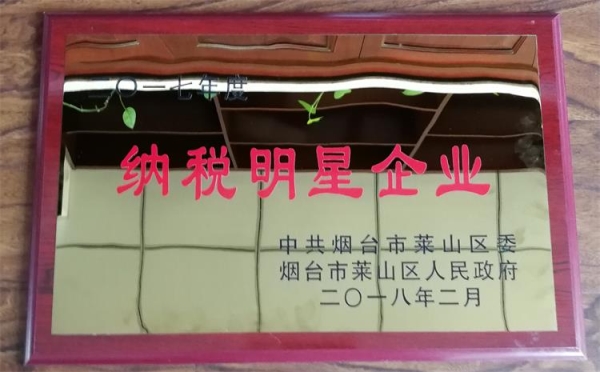 二〇一七年度
纳税明星企业
中共烟台市莱山区委
烟台市莱山区人民政府
二〇一八年二月